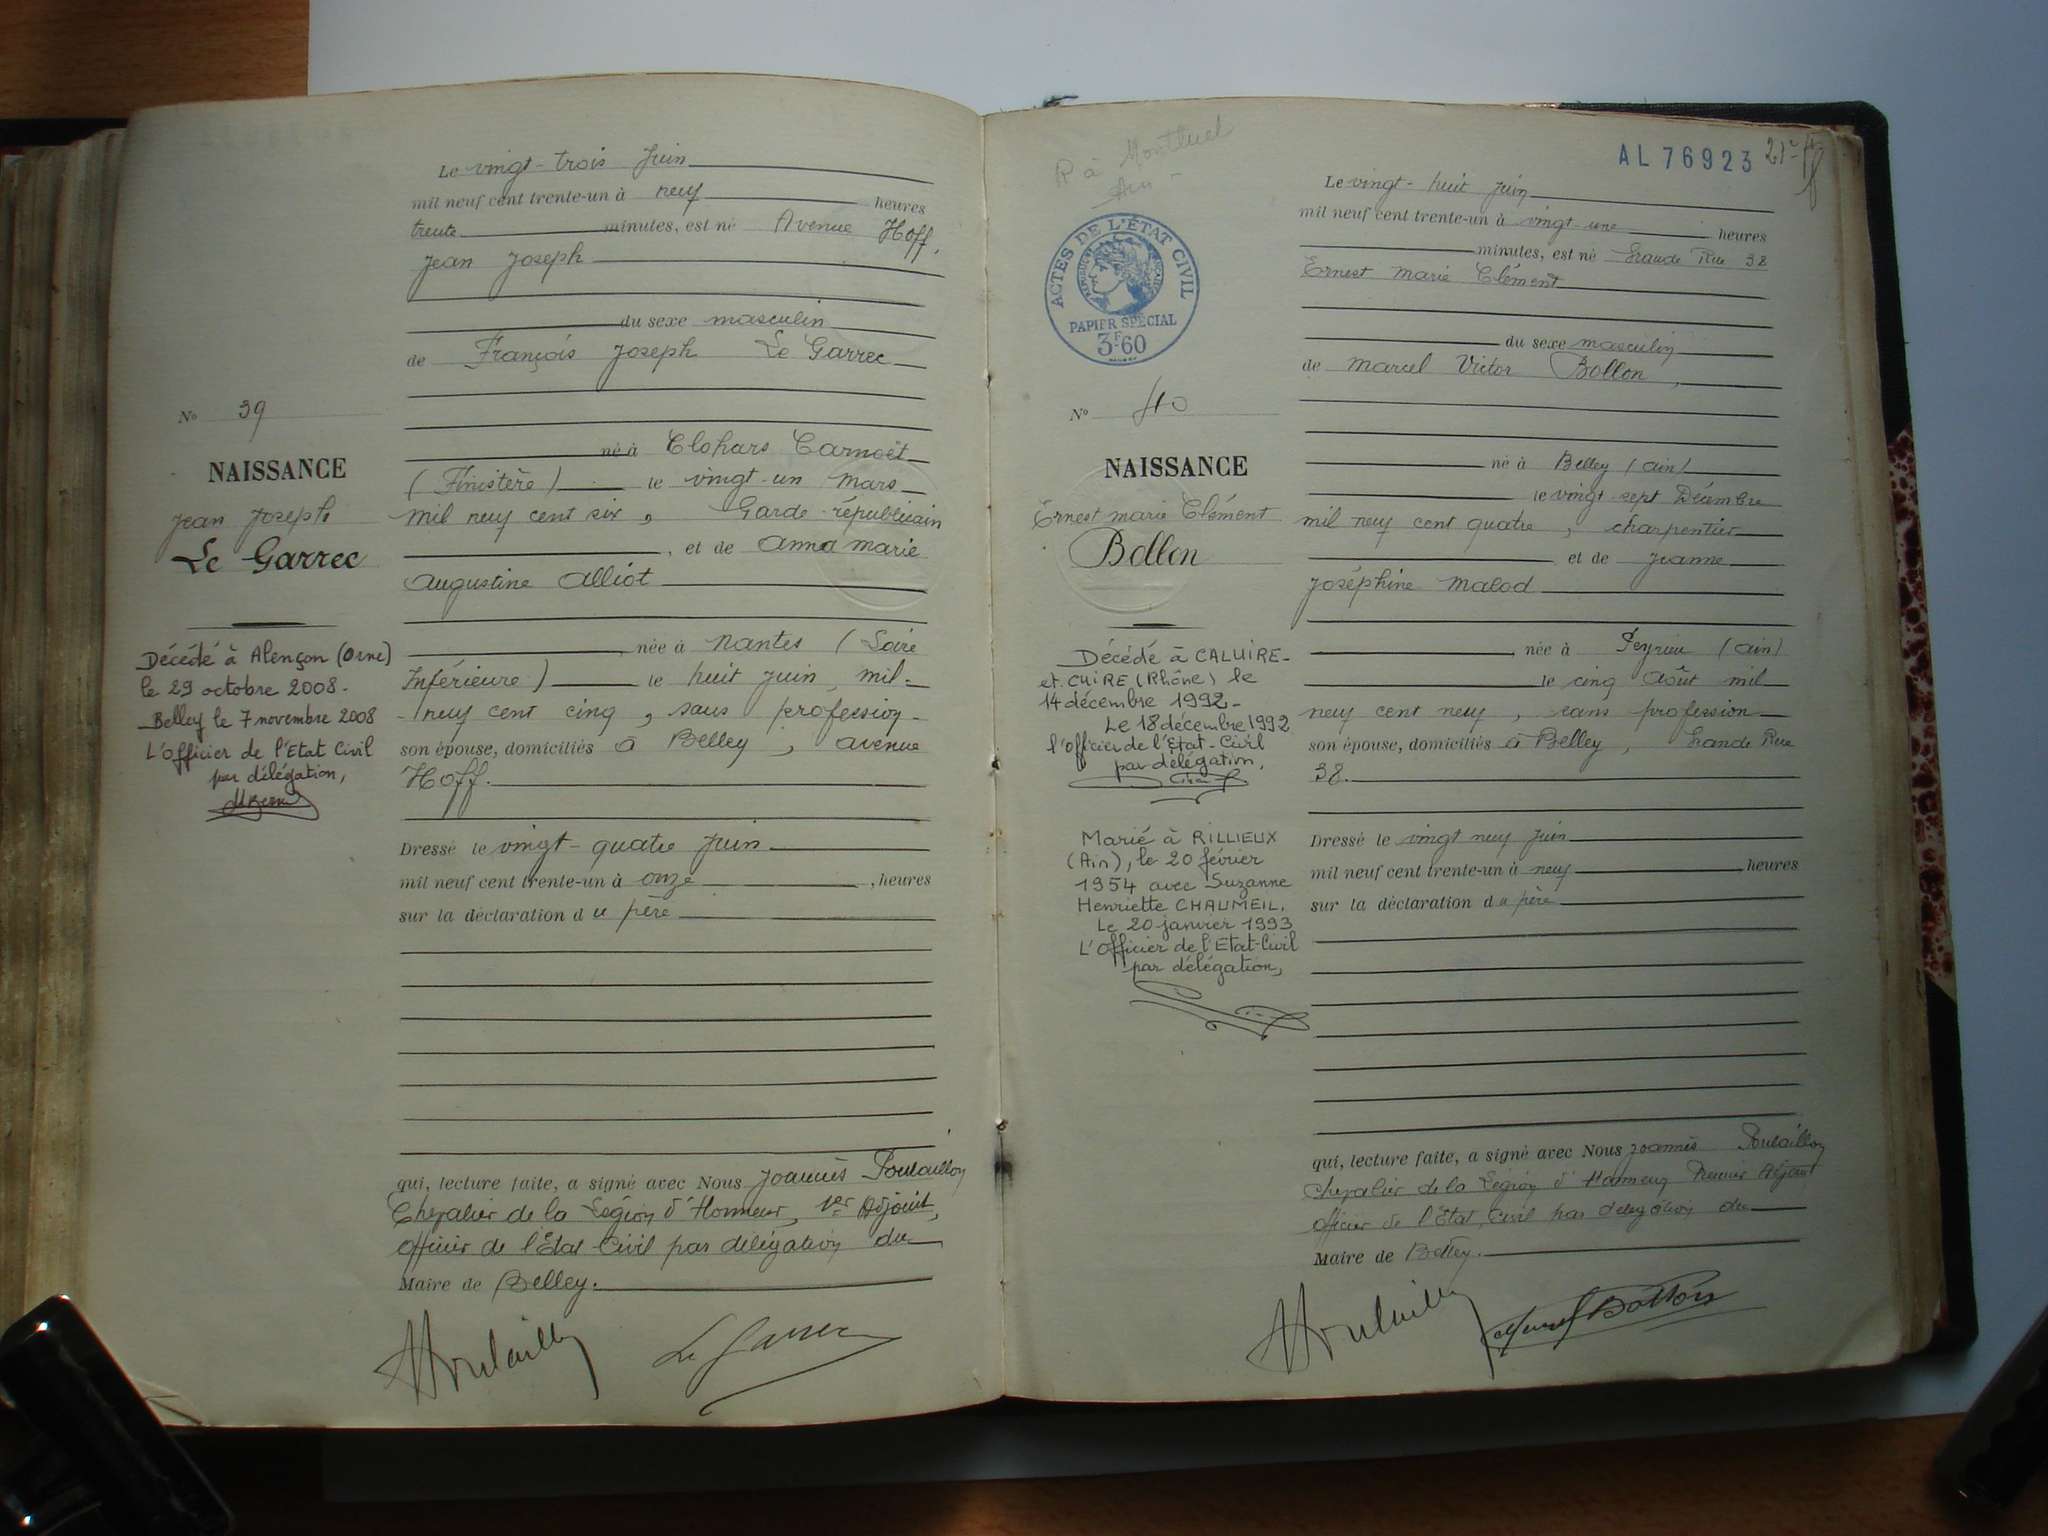 Le vingt-trois Juin
mil neuf cent trente-un à neuf heures
trente minutes, est né Avenue Hoff,
Jean Joseph
du sexe masculin
de François Joseph Le Garrec
N° 39
NAISSANCE
Jean Joseph
Le Garrec
né à Clohars Carnoët
(Finistère) le vingt-un Mars
mil neuf cent six, Garde-républicain
, et de Anna Marie
Augustine Alliot
née à Nantes (Loire
Inférieure) le huit Juin, mil-
neuf cent cinq, sans profession-
son épouse, domiciliés à Belley, avenue
Hoff.
Décédé à Alençon (Orne)
le 29 octobre 2008.
Belley le 7 novembre 2008
L'Officier de l'Etat Civil
par délégation,
Dressé le vingt-quatre Juin
mil neuf cent trente-un à onze, heures
sur la déclaration du père
qui, lecture faite, a signé avec Nous Joannès Poulaillon
Chevalier de la Légion d'Honneur, 1er Adjoint,
officier de l'Etat Civil par délégation du
Maire de Belley.
Le Garrec
R à Montluel
Ain -
AL 76923
ACTES DE L'ÉTAT CIVIL
PAPIER SPÉCIAL
3F60
Le vingt-huit Juin
mil neuf cent trente-un à vingt-une heures
minutes, est né Grande Rue 38
Ernest Marie Clément
du sexe masculin
de Marcel Victor Bollon,
N° 40
NAISSANCE
Ernest Marie Clément
Bollon
né à Belley (Ain)
le vingt-sept Décembre
mil neuf cent quatre, charpentier
et de Jeanne
Joséphine Malod
née à Peyrieu (Ain)
le cinq Août mil
neuf cent neuf, sans profession
son épouse, domiciliés à Belley, Grande Rue
38.
Décédé à CALUIRE-
et-CUIRE (Rhône) le
14 décembre 1992-
Le 18 décembre 1992
l'officier de l'Etat-Civil
par délégation,
Marié à RILLIEUX
(Ain), le 20 février
1954 avec Suzanne
Henriette CHAUMEIL.
Le 20 janvier 1993
L'Officier de l'Etat-Civil
par délégation,
Dressé le vingt neuf Juin
mil neuf cent trente-un à neuf heures
sur la déclaration du père
qui, lecture faite, a signé avec Nous Joannès Poulaillon
Chevalier de la Légion d'Honneur Premier Adjoint
officier de l'Etat Civil par délégation du
Maire de Belley.
Marcel Bollon